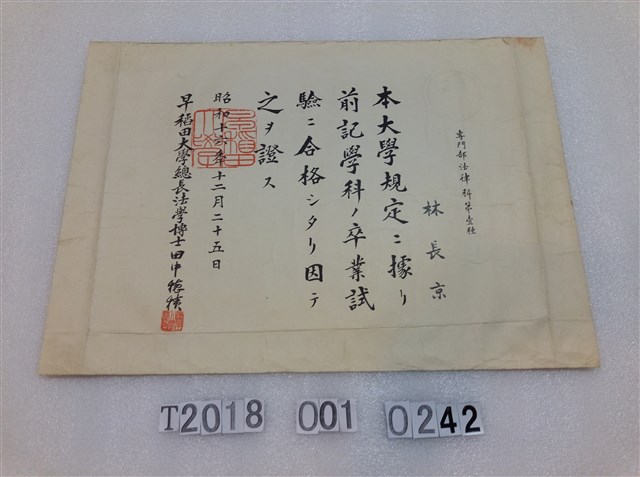 専門部法律科第壹種
林長京
本大學規定ニ據リ
前記學科ノ卒業試
驗ニ合格シタリ因テ
之ヲ證ス
昭和十六年十二月二十五日
早稲田大學總長法學博士田中穂積
T2018 001 0242